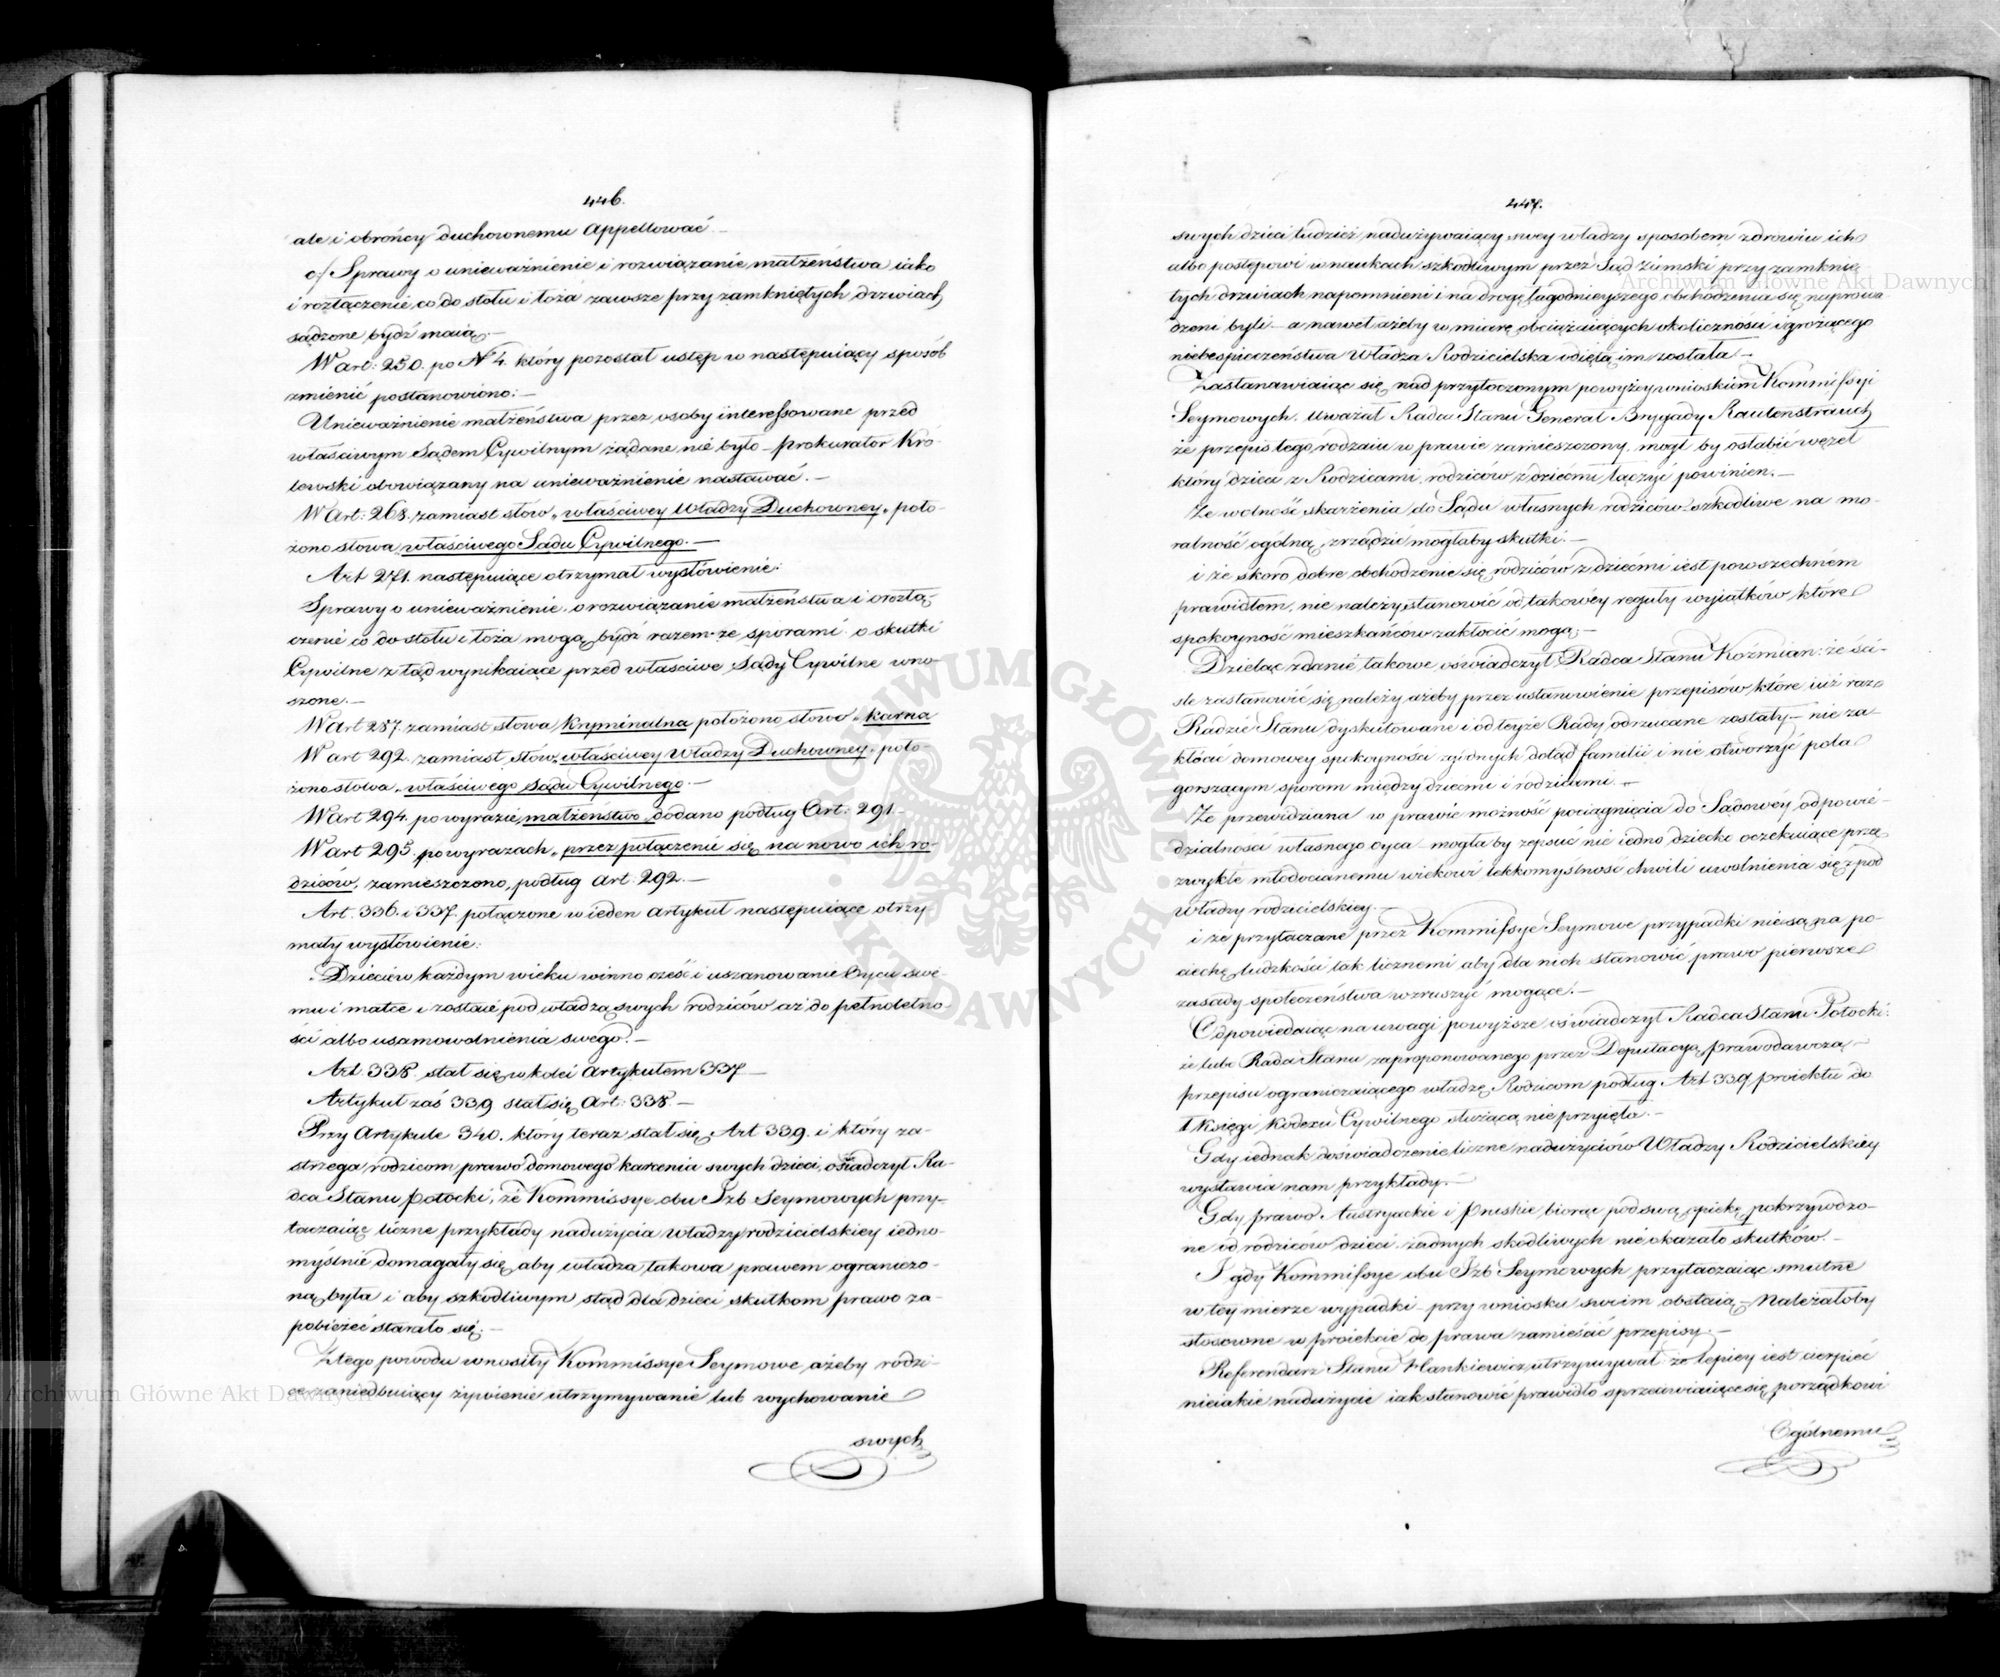 446.
ale i obrońcy duchownemu Appellować —
c/ Sprawy o unieważnienie i rozwiązanie małżeństwa iako
i rozłączenie co do stołu i łoża zawsze przy zamkniętych drzwiach
sądzone bydź maią. —
W art: 250. po N 4. który pozostał ustęp w następuiący sposób
zmienić postanowiono: —
Unieważnienie małżeństwa przez osoby interessowane przed
właściwym Sądem Cywilnym żądane nie było — prokurator Kró-
lewski obowiązany na unieważnienie nastawać. —
W Art: 268. zamiast słów „właściwey Władzy Duchowney„ poło-
żono słowa „właściwego Sądu Cywilnego. —
Art 271. następuiące otrzymał wysłówienie:
Sprawy o unieważnienie, o rozwiązanie małżeństwa i o rozłą-
czenie co do stołu i łoża mogą bydź razem ze sporami o skutki
Cywilne z tąd wynikaiące przed właściwe Sądy Cywilne wno-
szone. —
W Art 287. zamiast słowa Kryminalna położono słowo „karna
W art 292. zamiast słów „właściwey Władzy Duchowney„ poło-
żono słowa „właściwego Sądu Cywilnego. —
W art 294. po wyrazie „małżeństwo„ dodano podług Art: 291 —
W art 295. po wyrazach „przez połączenie się na nowo ich ro-
dziców, zamieszczono, podług art: 292. —
Art. 336. i 337. połączone w ieden artykuł następuiące otrzy
mały wysłówienie:
Dziecię w każdym wieku winno cześć i uszanowanie Oycu swe-
mu i matce i zostaie pod władzą swych rodziców aż do pełnoletno-
ści albo usamowolnienia swego. —
Art 338. stał się w kolei Artykułem 337 —
Artykuł zaś 339 stał się Art: 338. —
Przy Artykule 340. który teraz stał się Art 339. i który za-
strzega rodzicom prawo domowego karcenia swych dzieci, oświadczył Ra-
dca Stanu Potocki, że Kommissye obu Izb Seymowych przy-
taczaiąc liczne przykłady nadużycia władzy rodzicielskiey iedno-
myślnie domagały się, aby władza takowa prawem ograniczo-
ną była i aby szkodliwym stąd dla dzieci skutkom prawo za-
pobieżeć starało się. —
Z tego powodu wnosiły Kommissye Seymowe, ażeby rodzi-
ce zaniedbuiący żywienie utrzymywanie lub wychowanie
swych
447.
swych dzieci tudzież nadużywaiący swey władzy sposobem zdrowiu ich
albo postępowi w naukach szkodliwym przez Sąd Ziemski przy zamknię
tych drzwiach napomnieni i na drogę łagodnieyszego obchodzenia się naprowa-
dzeni byli — a nawet ażeby w miarę obciążaiących okoliczności i grożącego
niebespieczeństwa Władza Rodzicielska odiętą im została —
Zastanawiaiąc się nad przytoczonym powyżey wnioskiem Kommissyi
Seymowych. Uważał Radca Stanu Generał Brygady Rautenstrauch
że przepis tego rodzaiu w prawie zamieszczony, mógł by osłabić węzeł
który dzieci z Rodzicami, rodziców z dziećmi łączyć powinien. —
Że wolność skarżenia do Sądu własnych rodziców szkodliwe na mo-
ralność ogólną zrządzić mogłaby skutki. —
i że skoro dobre obchodzenie się rodziców z dziećmi iest powszechném
prawidłem, nie należy stanowić od takowey reguły wyiątków, które
spokoyność mieszkańców zakłócić mogą. —
Dzieląc zdanie takowe oświadczył Radca Stanu Koźmian: że ści-
śle zastanowić się należy ażeby przez ustanowienie przepisów które iuż raz
w Radzie Stanu dyskutowane i od teyże Rady odrzucane zostały — nie za-
kłócać domowey spokoyności zgodnych dotąd familii i nie otworzyć pola
gorszącym sporom między dziećmi i rodzicami. —
Że przewidziana w prawie możność pociągnięcia do Sądowéy odpowie-
dzialności własnego oyca — mogła by zepsuć nie iedno dziecko oczekuiące przez
zwykłe młodocianemu wiekowi lekkomyślność chwili uwolnienia się z pod
Władzy rodzicielskiey. —
i że przytaczane przez Kommissye Seymowe przypadki nie są na po-
ciechę ludzkości tak licznemi aby dla nich stanowić prawo pierwsze
zasady społeczeństwa wzruszyć mogące. —
Odpowiedaiąc na uwagi powyższe oświadczył Radca Stanu Potocki:
że lubo Rada Stanu zaproponowanego przez Deputacyą prawodawczą —
przepisu ograniczaiącego władzę Rodzicom podług Art 339. proiektu do
I Księgi Kodexu Cywilnego służącą nie przyięła. —
Gdy iednak doświadczenie liczne nadużyciów Władzy Rodzicielskiey
wystawia nam przykłady. —
Gdy prawo Austryackie i Pruskie, biorąc pod swą opiekę pokrzywdzo-
ne od rodziców dzieci, żadnych skodliwych nie okazało skutków. —
I gdy Kommissye obu Izb Seymowych przytaczaiąc smutne
w tey mierze wypadki — przy wniosku swoim obstaią — Należałoby
stosowne w proiekcie do prawa zamieścić przepisy. —
Referendarz Stanu Hankiewicz utrzymywał: że lepiey iest cierpieć
nieiakie nadużycie iak stanowić prawidło sprzeciwiaiące się porządkowi
Ogólnemu
Archiwum Główne Akt Dawnych
Archiwum Główne Akt Dawnych
ARCHIWUM GŁÓWNE AKT DAWNYCH